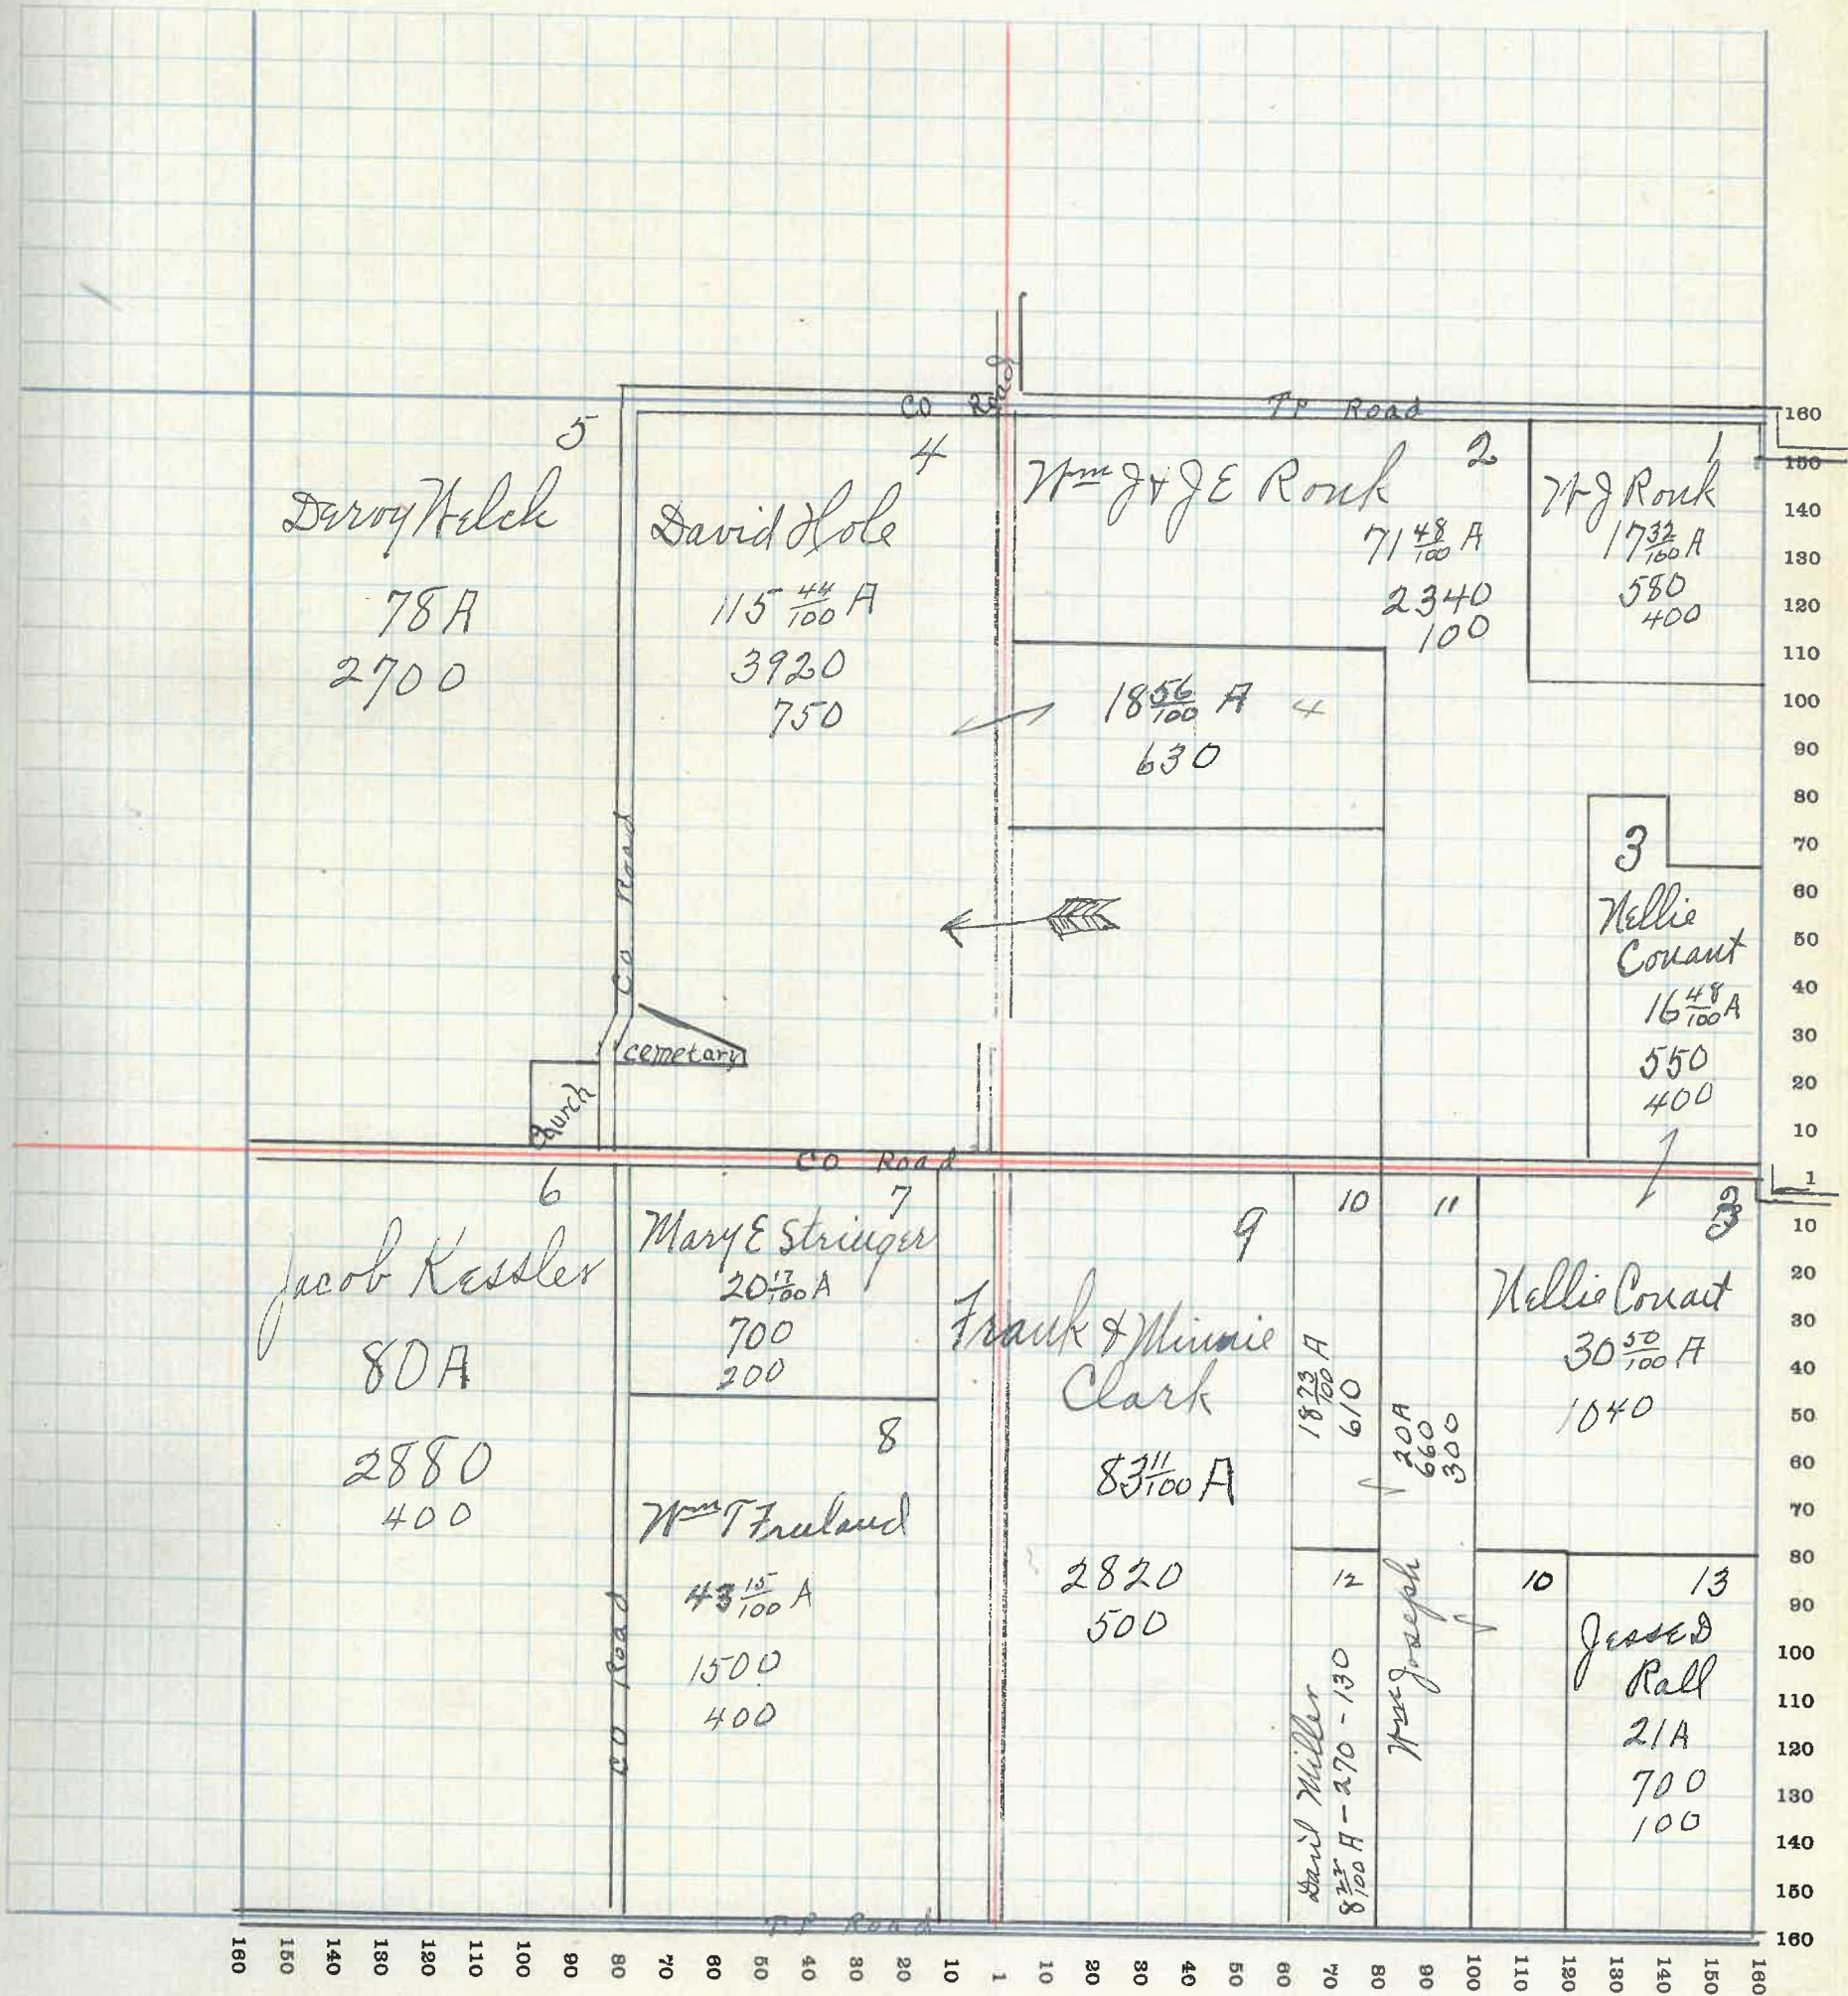 Co Road
Road
TP Road
5
Deroy Welch
78 A
2700
4
David Hole
115 44/100 A
3920
750
2
Wm J & J E Ronk
71 48/100 A
2340
100
1
W J Ronk
17 32/100 A
580
400
18 56/100 A 4
630
3
Nellie
Conant
16 48/100 A
550
400
Co Road
cemetary
Church
CO Road
6
Jacob Kessler
80 A
2880
400
7
Mary E Stringer
20 17/100 A
700
200
8
Wm T Freeland
43 15/100 A
1500
400
CO Road
9
Frank & Minnie
Clark
83 11/100 A
2820
500
10
18 73/100 A
610
11
20 A
660
300
Wm Joseph
12
David Miller
A - 270 - 130
3
Nellie Conant
30 50/100 A
1040
10
13
Jesse D
Rall
21 A
700
100
TP Road
160
150
140
130
120
110
100
90
80
70
60
50
40
30
20
10
1
10
20
30
40
50
60
70
80
90
100
110
120
130
140
150
160
160 150 140 130 120 110 100 90 80 70 60 50 40 30 20 10 1 10 20 30 40 50 60 70 80 90 100 110 120 130 140 150 160